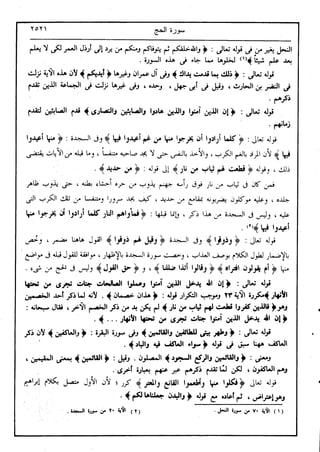 سورة الحج
٢٥٢١
النحل يغير من في قوله تعالى : ﴿ والله خلقكم ثم يتوفاكم ومنكم من يرد إلى أرذل العمر لكى لا يعلم
بعد علم شيئاً ﴾(١) لخلوها مما جاء فى هذه السورة .
قوله تعالى : ﴿ ذلك بما قدمت يداك ﴾ وفى آل عمران وغيرها ﴿ أيديكم ﴾ لأن هذه الآية نزلت
فى النضر بن الحارث ، وقيل فى أبى جهل ، وحده ، وفى غيرها نزلت فى الجماعة الذين تقدم
ذكرهم .
قوله تعالى : ﴿ إن الذين آمنوا والذين هادوا والصابئين والنصارى ﴾ قدم الصابئين لتقدم
زمانهم .
قوله تعالى : ﴿ كلما أرادوا أن يخرجوا منها من غم أعيدوا فيها ﴾ وفى السجدة : ﴿ منها أعيدوا
فيها ﴾ لأن المراد بالغم الكرب ، والأخذ بالنفس حتى لا يجد صاحبه متنفساً ، وما قبله من الآيات يقتضى
ذلك ، وقوله ﴿ قطعت لهم ثياب من نار ﴾ إلى قوله : ﴿ من حديد ﴾ .
فمن كان فى ثياب من نار فوق رأسه جهنم يذوب من حره أحشاء بطنه ، حتى يذوب ظاهر
جلده ، وعليه موكلون يضربونه بمقامع من حديد ، كيف يجد سرورا ومتنفسا من تلك الكرب التى
عليه ، وليس فى السجدة من هذا ذكر ، وإنما قبلها : ﴿ فمأواهم النار كلما أرادوا أن يخرجوا منها
أعيدوا فيها ﴾(٢) .
قوله تعالى : ﴿ وذوقوا ﴾ وفى السجدة ﴿ وقيل لهم ذوقوا ﴾ القول هاهنا مضمر ، وخص
بالإضمار لطول الكلام بوصف العذاب ، وخصت سورة السجدة بالإظهار ، موافقة للقول قبله فى مواضع
منها ﴿ أم يقولون افتراه ﴾ ﴿ وقالوا أئذا ضللنا ﴾ ، و ﴿ حق القول ﴾ وليس فى الحج من شىء .
قوله تعالى : ﴿ إن الله يدخل الذين آمنوا وعملوا الصالحات جنات تجرى من تحتها
الأنهار ﴾ مكررة الآية ٢٣ وموجب التكرار قوله : ﴿ هذان خصمان ﴾ . لأنه لما ذكر أحد الخصمين
وهو ﴿ فالذين كفروا قطعت لهم ثياب من نار ﴾ لم يكن بد من ذكر الخصم الآخر ، فقال سبحانه :
﴿ إن الله يدخل الذين آمنوا جنات تجرى من تحتها الأنهار . . . ﴾ .
قوله تعالى : ﴿ وطهر بيتى للطائفين والقائمين ﴾ وفى سورة البقرة : ﴿ والعاكفين ﴾ لأن ذكر
العاكف ههنا سبق فى قوله ﴿ سواء العاكف فيه والباد ﴾ .
ومعنى : ﴿ والقائمين والركع السجود ﴾ المصلون . وقيل : ﴿ القائمين ﴾ بمعنى المقيمين ،
وهم العاكفون ، لكن لما تقدم ذكرهم عبر عنهم بعبارة أخرى .
قوله تعالى ﴿ فكلوا منها وأطعموا القانع والمعتر ﴾ كرر ؛ لأن الأول متصل بكلام إبراهيم
وهو إعتراض ، ثم أعاده مع قوله ﴿ والبدن جعلناها لكم ﴾ .
(١) الآية ٧٠ من سورة النحل .
(٢) الآية ٢٠ من سورة السجدة .